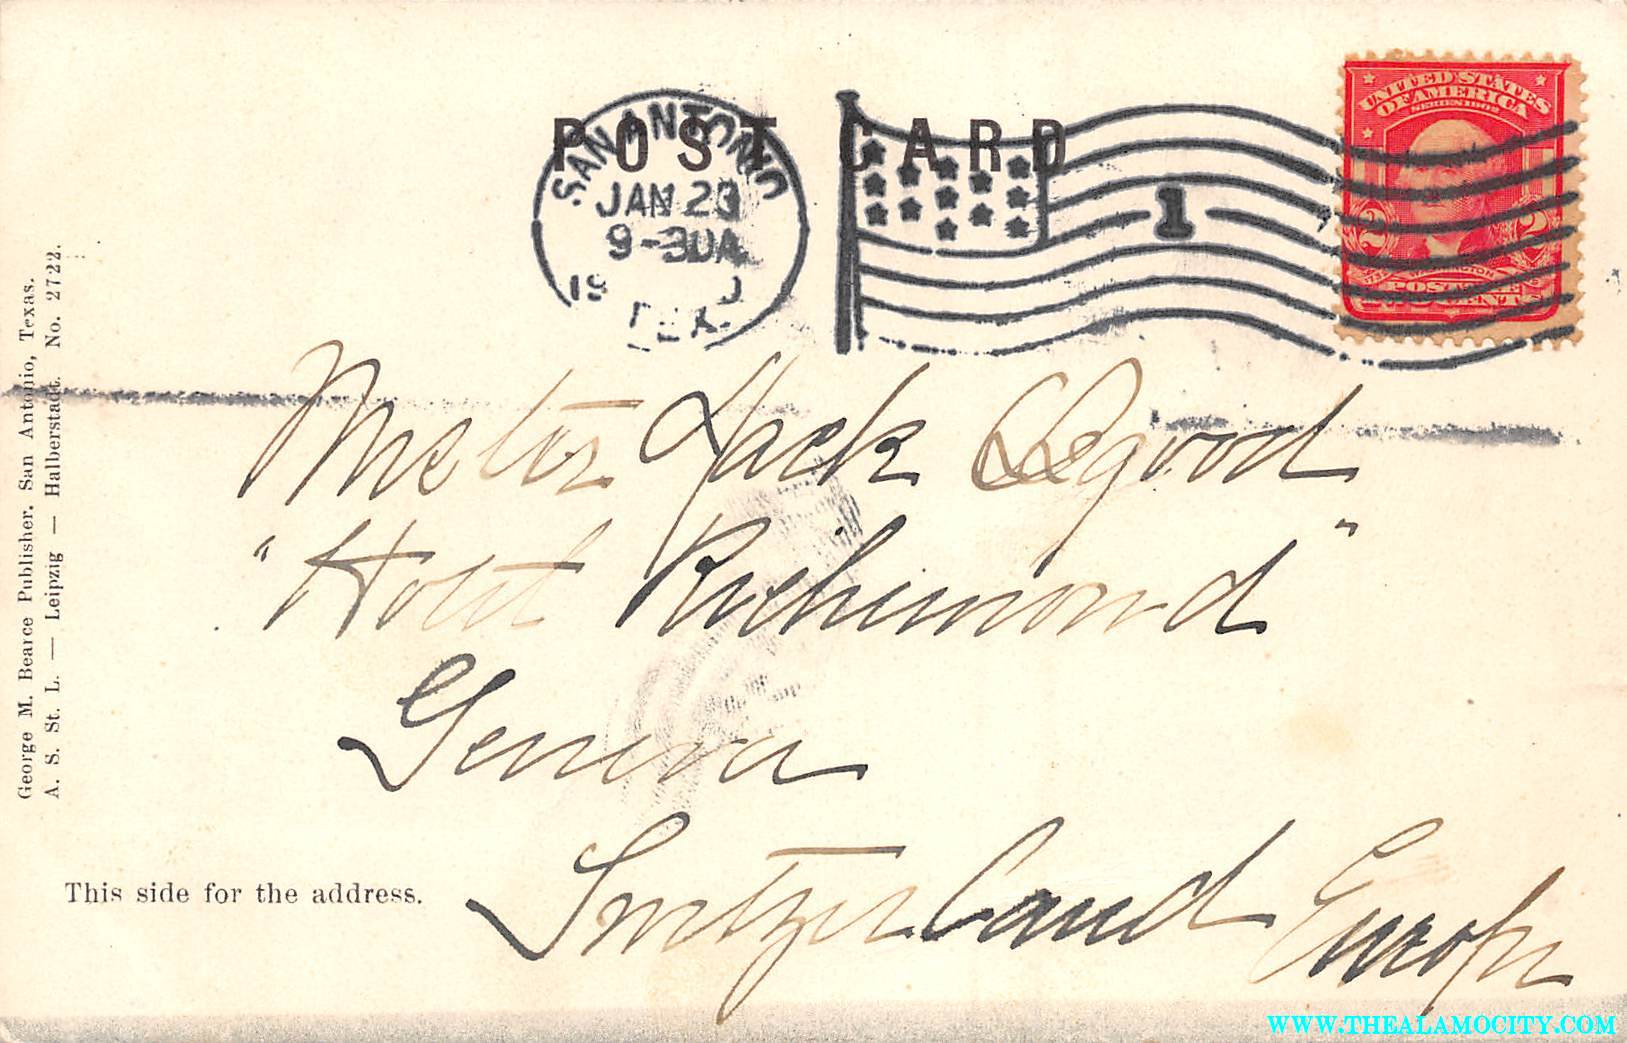 POST CARD
SAN ANTONIO
JAN 23
9-30A
19
TEX.
1
UNITED STATES
OF AMERICA
SERIES 1902
2 2
WASHINGTON
POSTAGE
TWO CENTS
Master Jack Osgood
"Hotel Richmond"
Geneva
Switzerland Europe
George M. Bearce Publisher, San Antonio, Texas.
A. S. St. L. — Leipzig — Halberstadt. No. 2722.
This side for the address.
WWW.THEALAMOCITY.COM